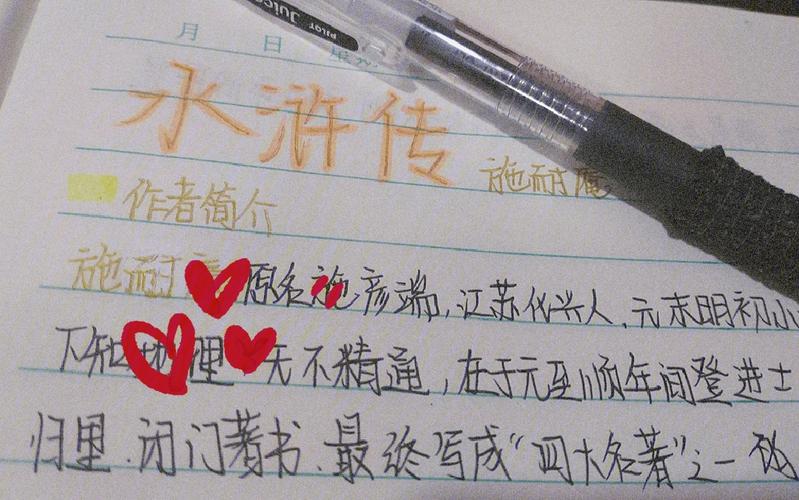 PILOT Juice
月 日
水浒传
施耐庵
作者简介
施耐 原名施彦端,江苏化兴人,元末明初小
下知地理 无不精通,在于元至顺年间登进士
归里.闭门著书、最终写成“四大名著”之一